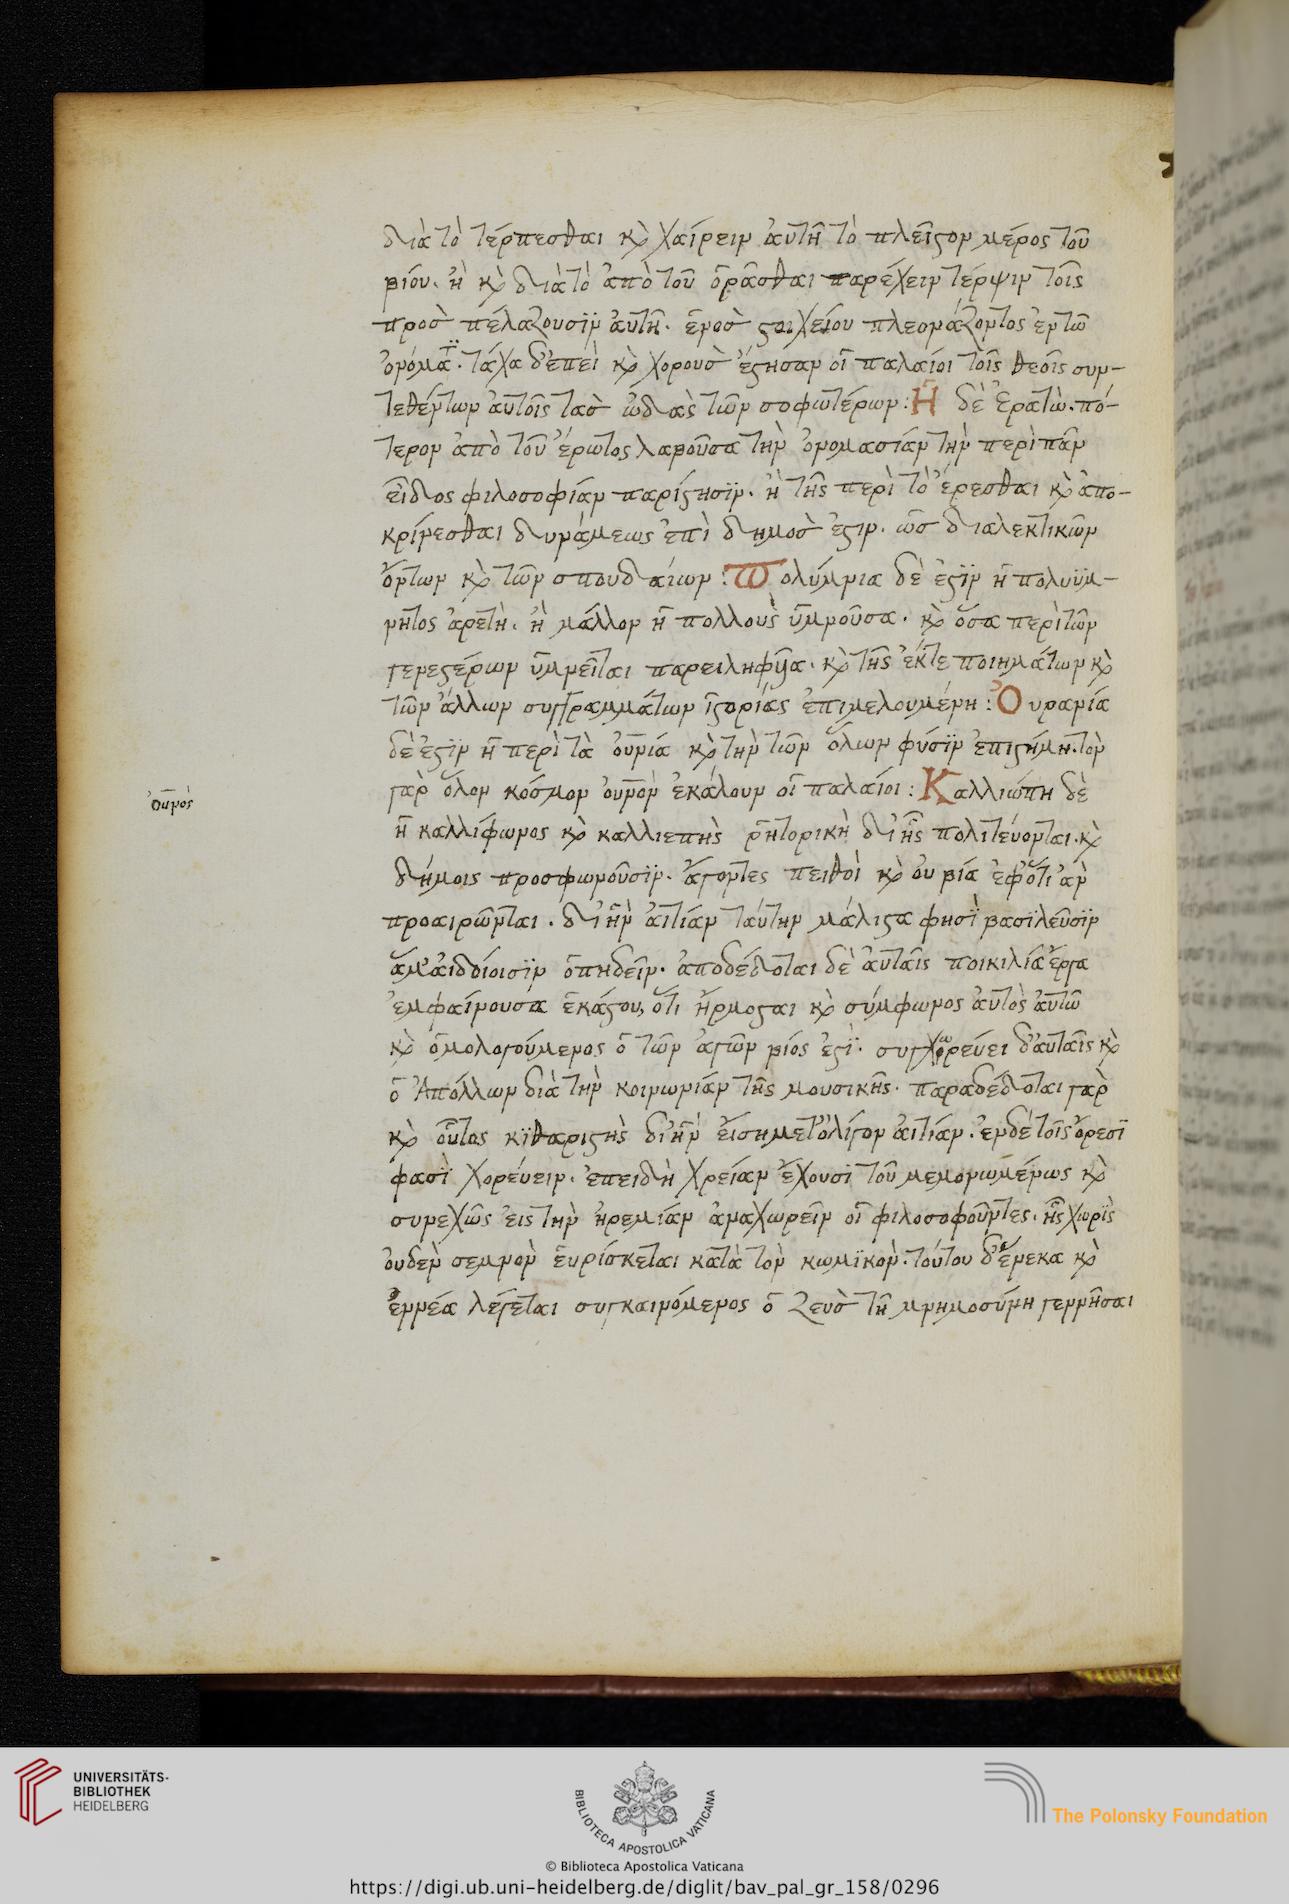 διὰ τὸ τέρπεσθαι κὶ χαίρειν ἀυτῆ τὸ πλεῖστον μέρος τοῦ
βίου. ἢ κὶ διὰ τὸ ἀπὸ τοῦ ὁρᾶσθαι παρέχειν τέρψιν τοῖς
προσ πέλαζουσϊν ἀυτῆ. ἑνοσ στοιχείου πλεονάζοντος ἐν τῶ
ὀνόματϊ. τάχα δ' ἐπεὶ κὶ χορουσ ἔστησαν οἱ παλαίοι τοῖς θεοῖς συν-
τεθέντων ἀυτοῖς τασ ὠδὰς τῶν σοφωτέρων: Ἡ δὲ Ἐρατὼ. πό-
τερον ἀπὸ τοῦ ἔρωτος λαβοῦσα τὴν ὀνομασίαν τὴν περὶ πᾶν
εἶδος φιλοσοφίαν παρίστησϊν. ἢ τῆς περὶ τὸ ἔρεσθαι κὶ ἀπο-
κρίνεσθαι δυνάμεως ἐπὶ δημοσ ἐστιν. ὡσ διαλεκτικῶν
ὄντων κὶ τῶν σπουδαίων: Πολύμνια δὲ ἐστϊν ἡ πολυϋμ-
νητος ἀρετὴ. ἢ μάλλον ἡ πολλοὺς ὑμνοῦσα. κὶ ὅσα περὶ τῶν
γενεστέρων ὑμνεῖται παρειληφῦα. κὶ τῆς ἔκτε ποιημάτων κὶ
τῶν ἄλλων συγγραμμάτων ἱστορίας ἐπιμελουμένη: Ὀυρανία
δὲ ἐστϊν ἡ περὶ τὰ ὀυνία κὶ τὴν τῶν ὅλων φύσϊν ἐπιστήμη. τὸν
γὰρ ὅλον κόσμον ὀυνὸν ἐκάλουν οἱ παλαίοι: Καλλιώπη δὲ
ὀυνὸς
ἡ καλλίφωνος κὶ καλλιεπὴς ῥητορικὴ δι' ἧς πολιτέυονται. κὶ
δήμοις προσφωνοῦσϊν. ἄγοντες πειθοὶ κὶ ὀυ βία ἐφ' ὅτι ἂν
προαιρῶνται. δι' ἣν ἀιτίαν ταύτην μάλιστα φησὶ βασϊλεῦσϊν
ἅμ' ἀιδοίοισϊν ὁπηδεῖν. ἀποδέδοται δὲ ἀυταῖς ποικιλία ἔργα
ἐμφαίνουσα ἑκάστου, ὅτι ἥρμοσται κὶ σύμφωνος ἀυτὸς ἀυτῶ
κὶ ὁμολογούμενος ὁ τῶν ἀγῶν βίος ἐστϊ. συγχωρεύει δ' ἀυταῖς κὶ
ὁ Ἀπόλλων διὰ τὴν κοινωνίαν τῆς μουσικῆς. παραδέδοται γὰρ
κὶ οὗτος κϊθαριστὴς δι' ἣν ἐίση μετ' ὀλίγον ἀιτίαν. ἐν δὲ τοῖς ὄρεσϊ
φασϊ χορέυειν. ἐπειδὴ χρείαν ἔχουσϊ τοῦ μεμονωμένως κὶ
συνεχῶς ἐις τὴν ἠρεμίαν ἀναχωρεῖν οἱ φιλοσοφοῦντες. ἧς χωρὶς
ὀυδεν σεμνὸν ἑυρίσκεται κατὰ τὸν κωμϊκὸν. τούτου δ' ἕνεκα κὶ
ἐννέα λέγεται συγκαινόμενος ὁ Ζευσ τῆ μνημοσύνη γεννῆσαι
UNIVERSITÄTS-
BIBLIOTHEK
HEIDELBERG
BIBLIOTECA APOSTOLICA VATICANA
The Polonsky Foundation
© Biblioteca Apostolica Vaticana
https://digi.ub.uni-heidelberg.de/diglit/bav_pal_gr_158/0296